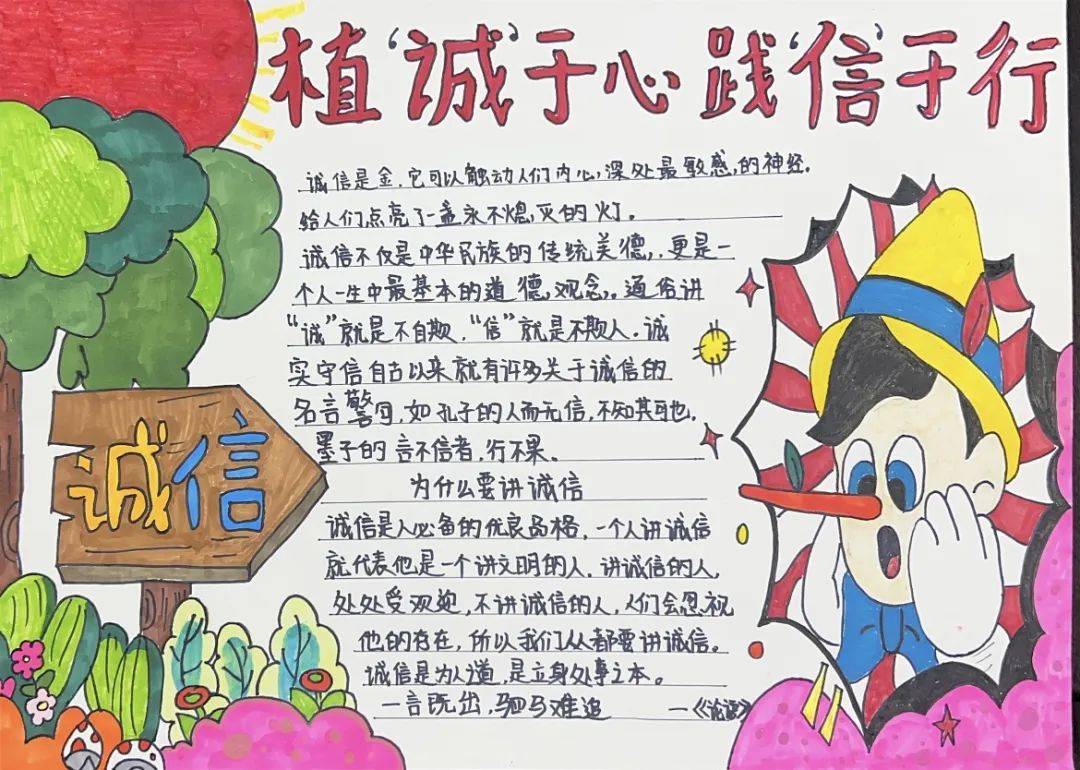 植'诚'于心 践'信'于行
诚信是金,它可以触动人们内心,深处最敏感,的神经,
给人们点亮了一盏永不熄,灭的灯。
诚信不仅是中华民族的传统美德,更是一
个人一生中最基本的道德,观念,。通俗讲
“诚”就是不自欺,“信”就是不欺人.诚
实守信自古以来就有许多关于诚信的
名言警句,如孔子的人而无信,不知其可也,
墨子的言不信者,行不果,
为什么要讲诚信
诚信
诚信是人必备的优良品格,一个人讲诚信
就代表他是一个讲文明的人.讲诚信的人,
处处受欢迎,不讲诚信的人,人们会忽视
他的存在,所以我们从都要讲诚信。
诚信是为人道,是立身处事之本。
一言既出,驷马难追 —《论语》